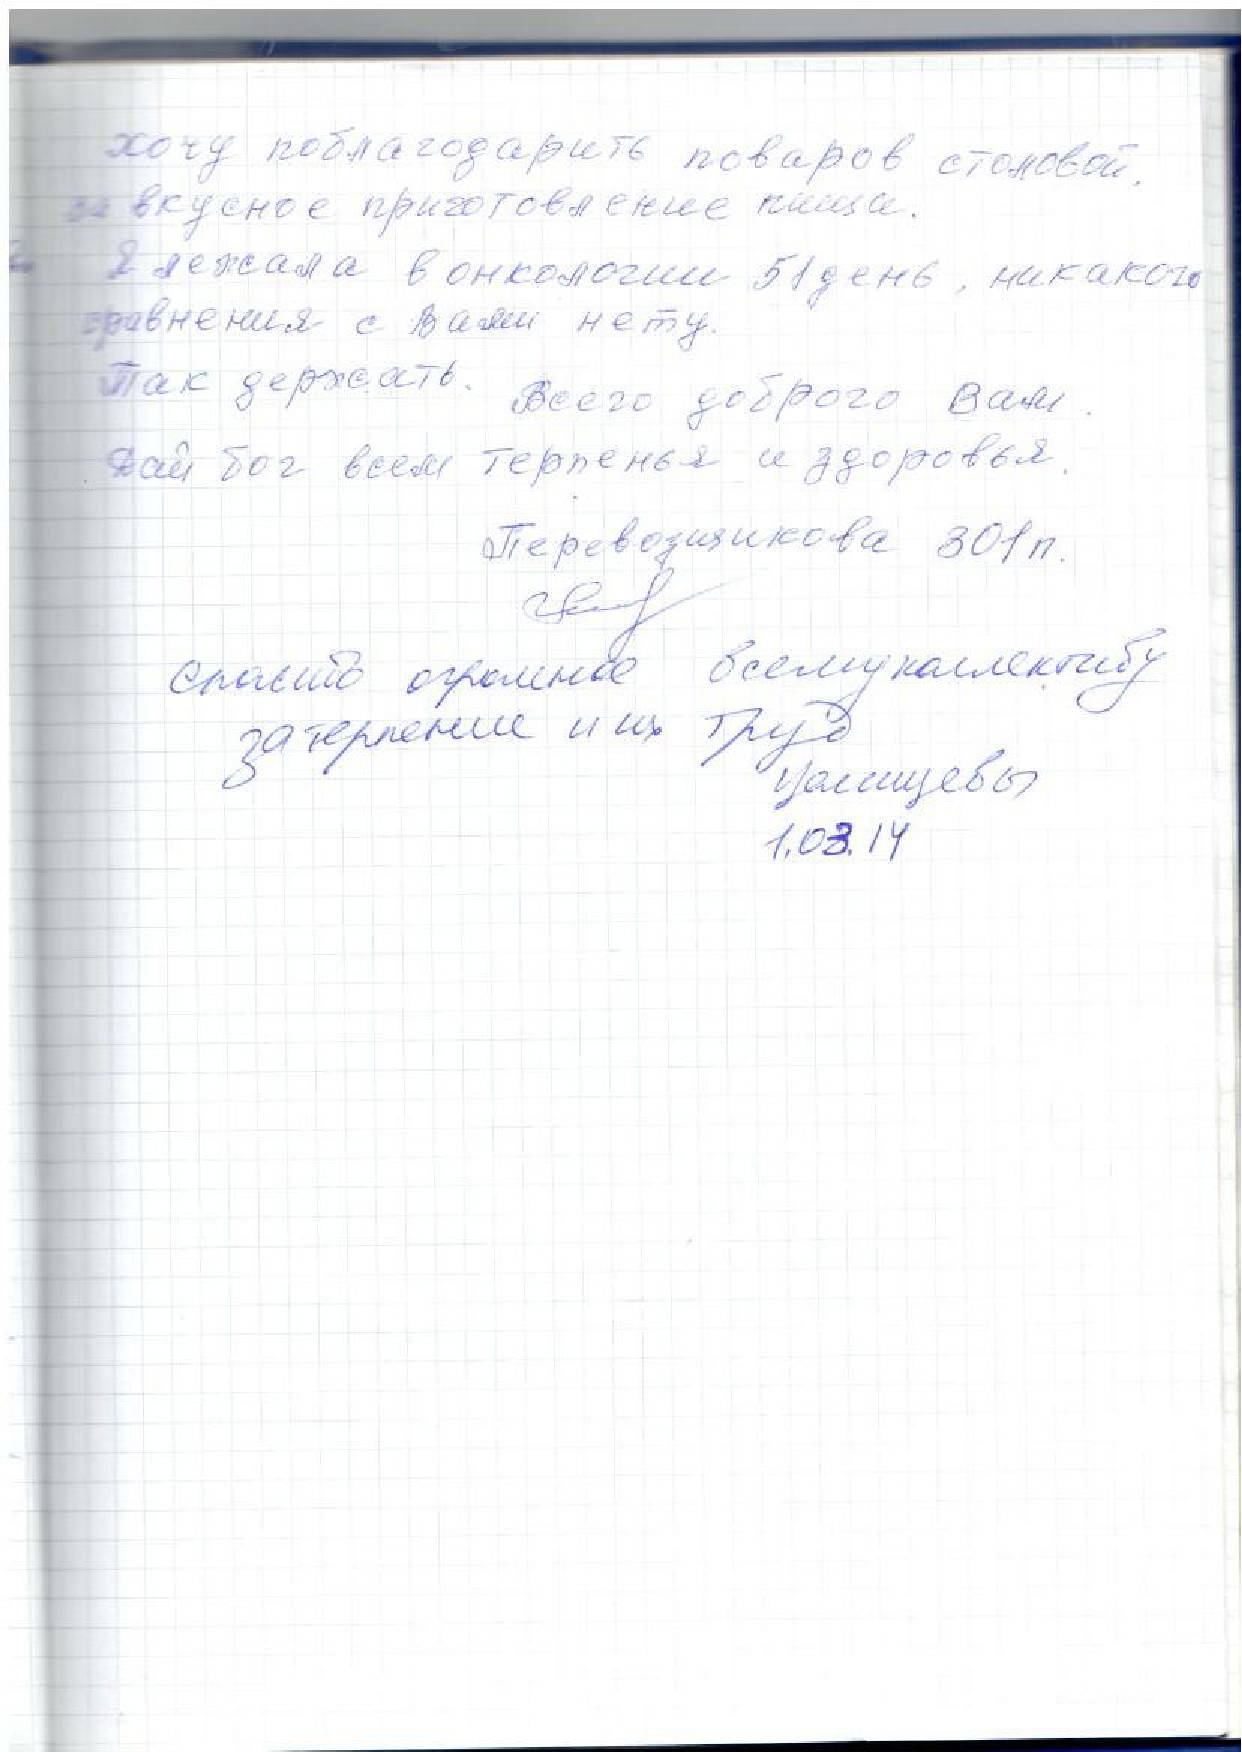 Хочу поблагодарить поваров столовой,
за вкусное приготовление пищи.
Я лежала в онкологии 51 день, никакого
сравнения с Вами нету.
Так держать. Всего доброго Вам.
Дай бог всем терпенья и здоровья.
Перевозщикова 301п.
Спасибо огромное всему коллективу
за терпение и их труд
1.03.14